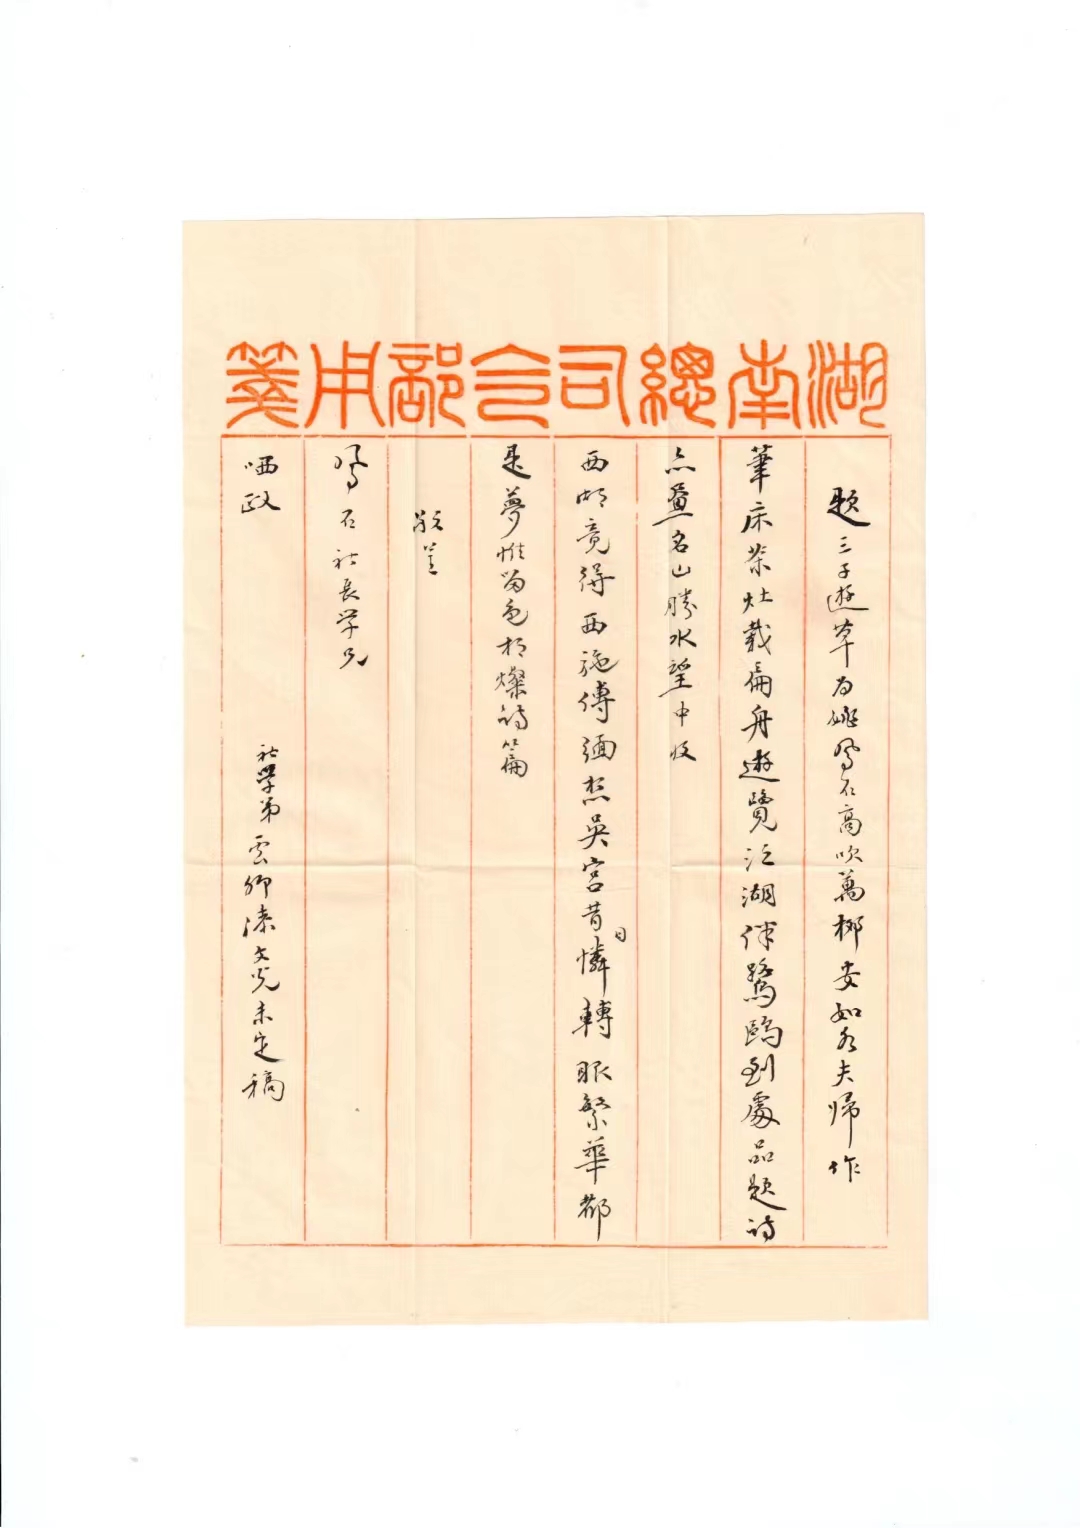 湖南總司令部用箋
題三子遊草為姚鳳石高吹萬柳安如各夫婦作
筆床茶灶載扁舟遊覽江湖伴鷺鷗到處品題詩
亦畫名山勝水望中收
西湖竟得西施傳緬想吳宮昔日憐轉眼繁華都
是夢惟留色相燦詩篇
敬呈
鳳石社長学兄
哂政
社學弟雲卿漆文光未定稿